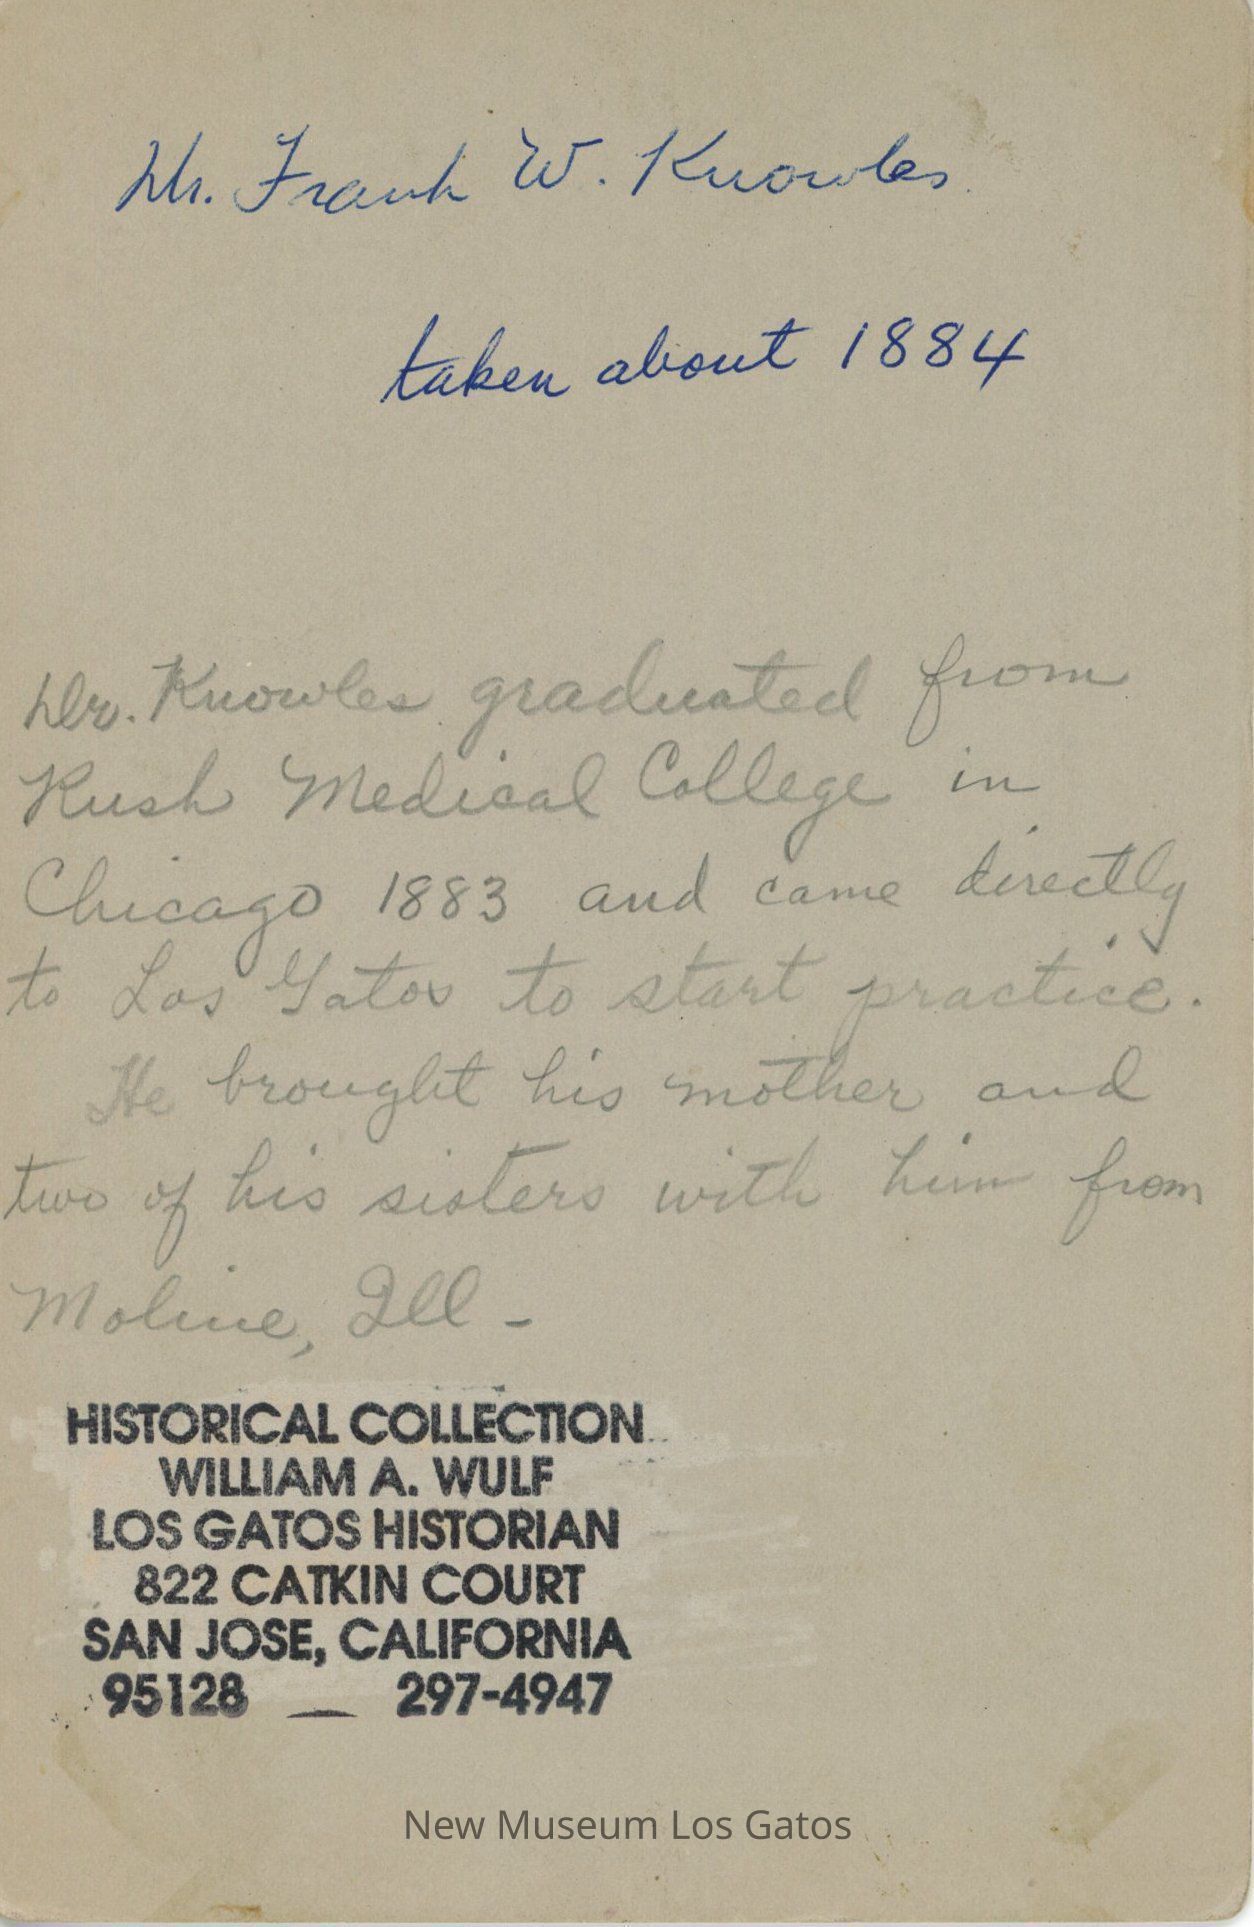 Dr. Frank W. Knowles
taken about 1884
Dr. Knowles graduated from
Rush Medical College in
Chicago 1883 and came directly
to Los Gatos to start practice.
He brought his mother and
two of his sisters with him from
Moline, Ill -
HISTORICAL COLLECTION
WILLIAM A. WULF
LOS GATOS HISTORIAN
822 CATKIN COURT
SAN JOSE, CALIFORNIA
95128 — 297-4947
New Museum Los Gatos